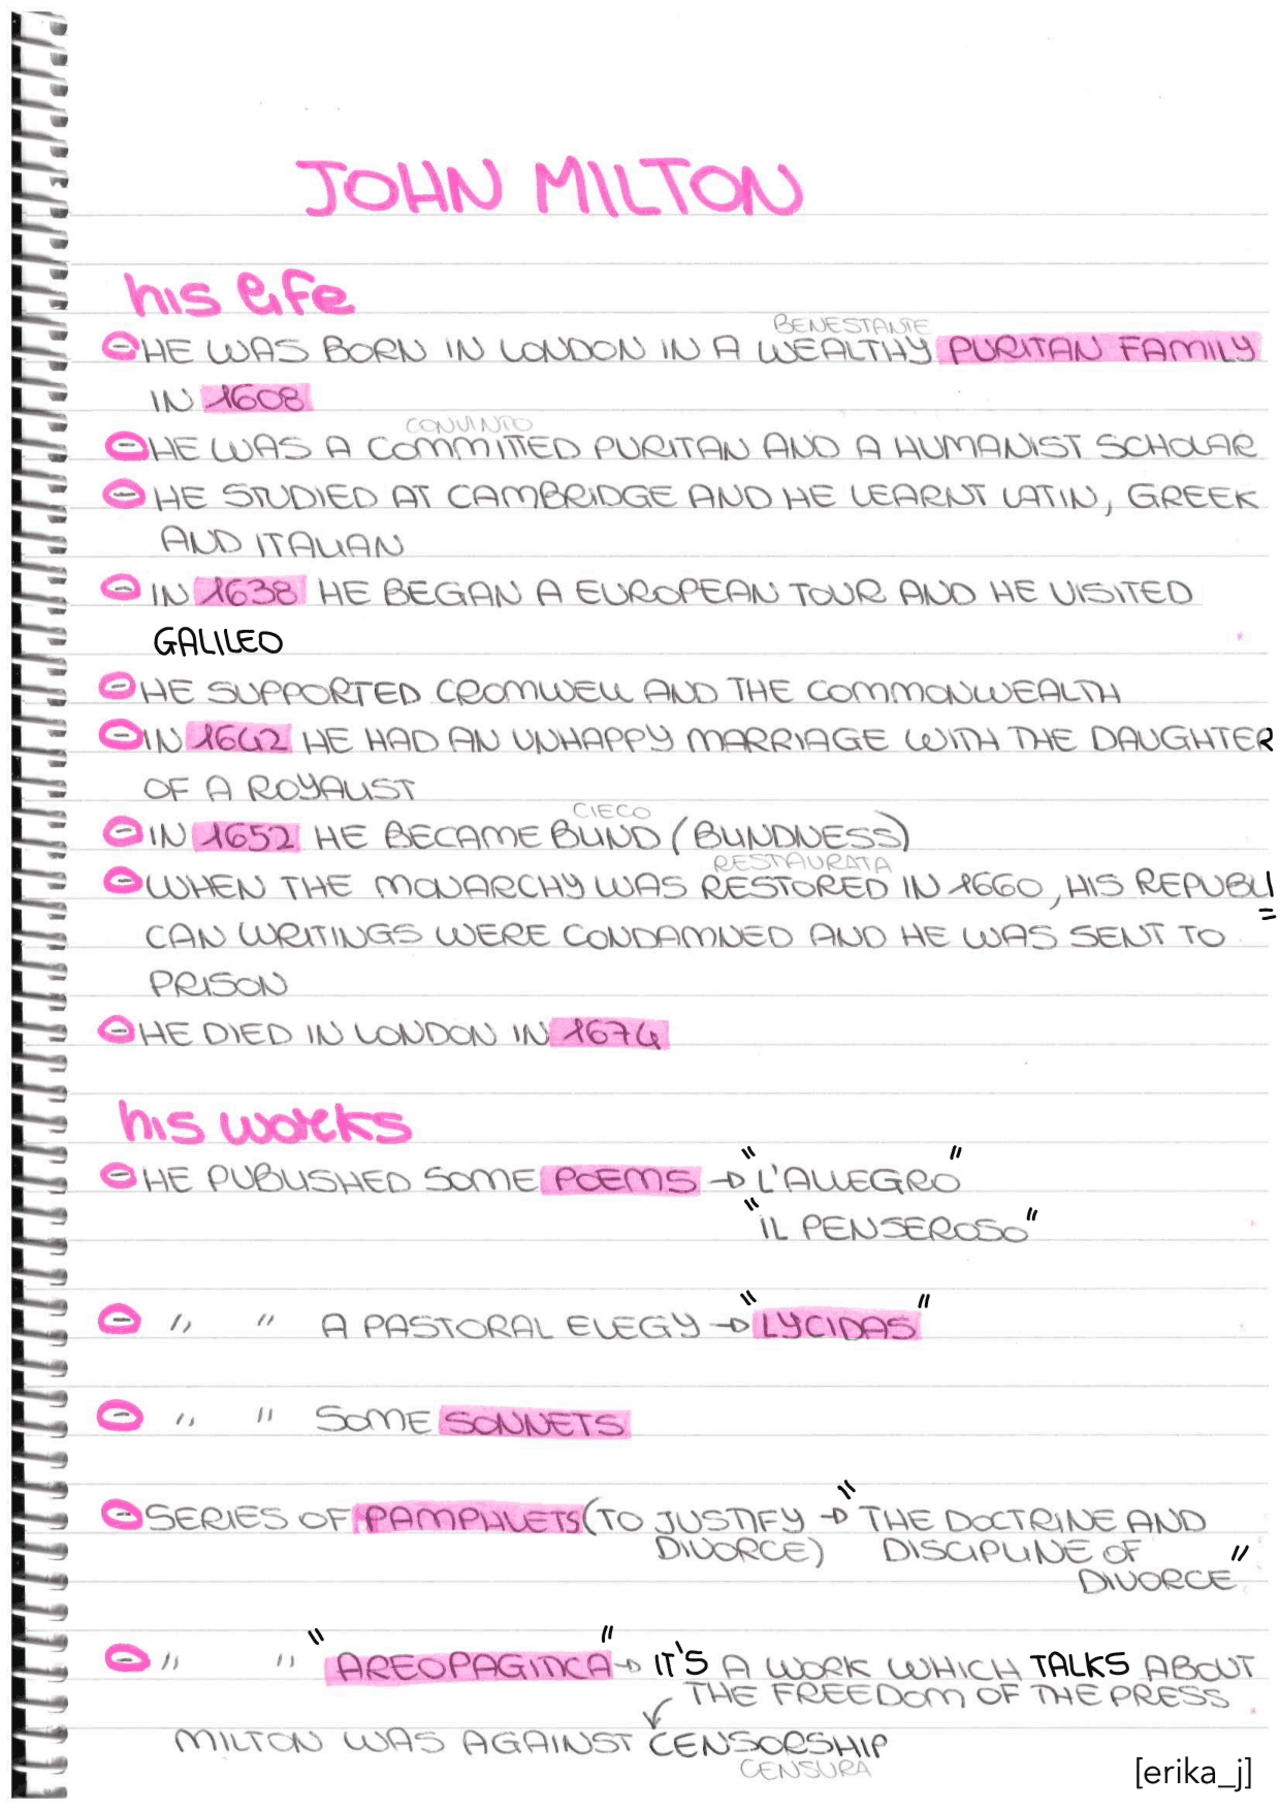 JOHN MILTON
his life
BENESTANTE
- HE WAS BORN IN LONDON IN A WEALTHY PURITAN FAMILY
IN 1608
CONVINTO
- HE WAS A COMMITTED PURITAN AND A HUMANIST SCHOLAR
- HE STUDIED AT CAMBRIDGE AND HE LEARNT LATIN, GREEK
AND ITALIAN
- IN 1638 HE BEGAN A EUROPEAN TOUR AND HE VISITED
GALILEO
- HE SUPPORTED CROMWELL AND THE COMMONWEALTH
- IN 1642 HE HAD AN UNHAPPY MARRIAGE WITH THE DAUGHTER
OF A ROYALIST
CIECO
- IN 1652 HE BECAME BLIND (BLINDNESS)
RESTAURATA
- WHEN THE MONARCHY WAS RESTORED IN 1660, HIS REPUBLI=
CAN WRITINGS WERE CONDAMNED AND HE WAS SENT TO
PRISON
- HE DIED IN LONDON IN 1674
his works
- HE PUBLISHED SOME POEMS → "L'ALLEGRO"
"IL PENSEROSO"
- " " A PASTORAL ELEGY → "LYCIDAS"
- " " SOME SONNETS
- SERIES OF PAMPHLETS (TO JUSTIFY → "THE DOCTRINE AND
DIVORCE) DISCIPLINE OF
DIVORCE"
- " " "AREOPAGITICA" → IT'S A WORK WHICH TALKS ABOUT
THE FREEDOM OF THE PRESS
MILTON WAS AGAINST CENSORSHIP
CENSURA
[erika_j]